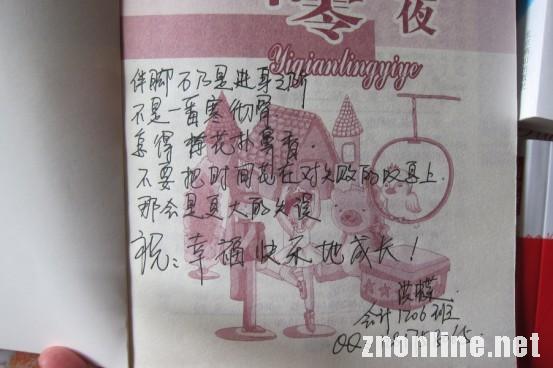 零
夜
Yiqianlingyiye
绊脚石乃是进身之阶
不是一番寒彻骨
怎得梅花扑鼻香.
不要把时间花在对失败的叹息上.
那会是更大的失误
祝:幸福快乐地成长!
会计1206班
QQ
znonline.net